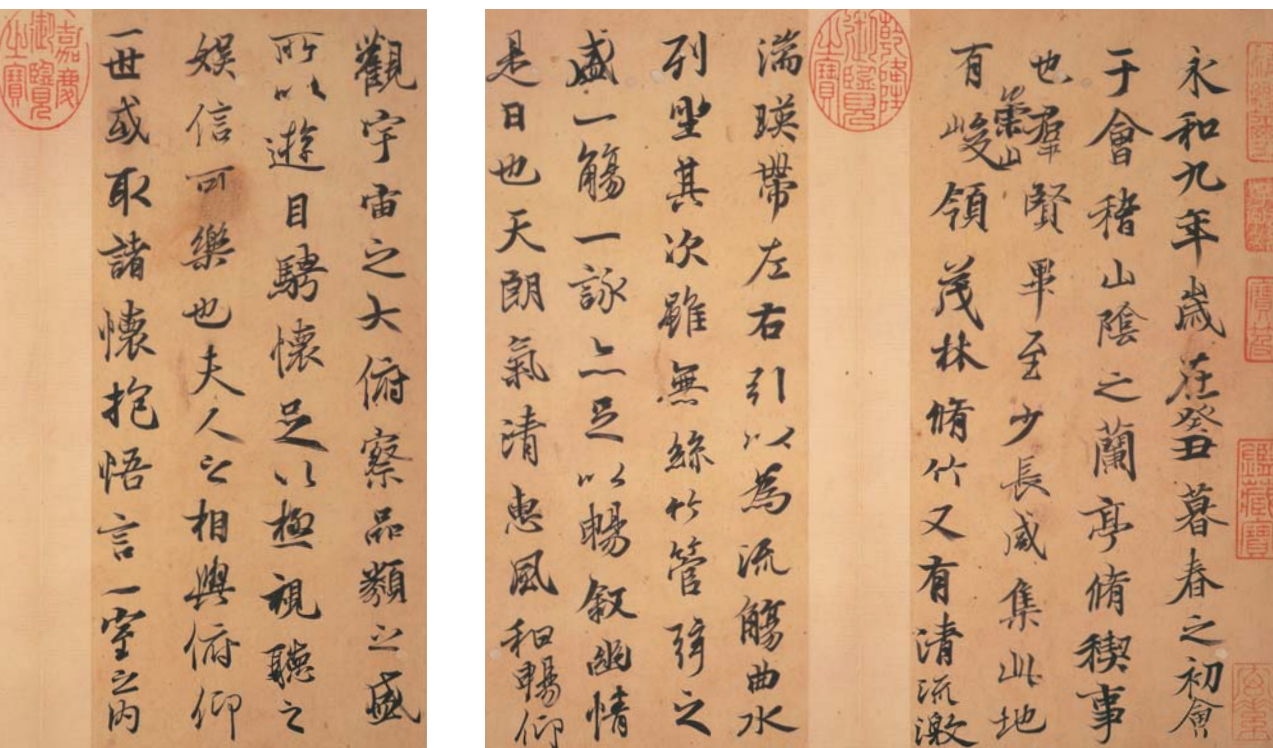 永和九年歲在癸丑暮春之初會
于會稽山陰之蘭亭脩稧事
也羣賢畢至少長咸集此地
崇山
有峻領茂林脩竹又有清流激
乾隆御覽之寶
湍暎帶左右引以為流觴曲水
列坐其次雖無絲竹管弦之
盛一觴一詠亦足以暢叙幽情
是日也天朗氣清惠風和暢仰
觀宇宙之大俯察品類之盛
所以遊目騁懷足以極視聽之
娛信可樂也夫人之相與俯仰
一世或取諸懷抱悟言一室之内
嘉慶御覽之寶